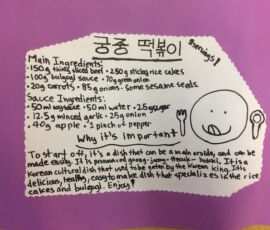 궁중 떡볶이
2 servings!
Main Ingredients:
•150g thinly sliced beef •250g sticky rice cakes
•100g bulgogi sauce •70g green onion
•20g carrots •85g onions. Some sesame seeds.
Sauce Ingredients:
•50 ml soy sauce •50 ml water •25g sugar
•12.5g minced garlic •25g onion
•40g apple •1 pinch of pepper
Why it's important
To start off, it's a dish that can be a main or side, and can be
made easily. It is pronounced
Korean cultural dish that used to be eaten by the Korean king. It is
delicious, healthy, easy to make dish that specializes in the rice
cakes and bulgogi. Enjoy!